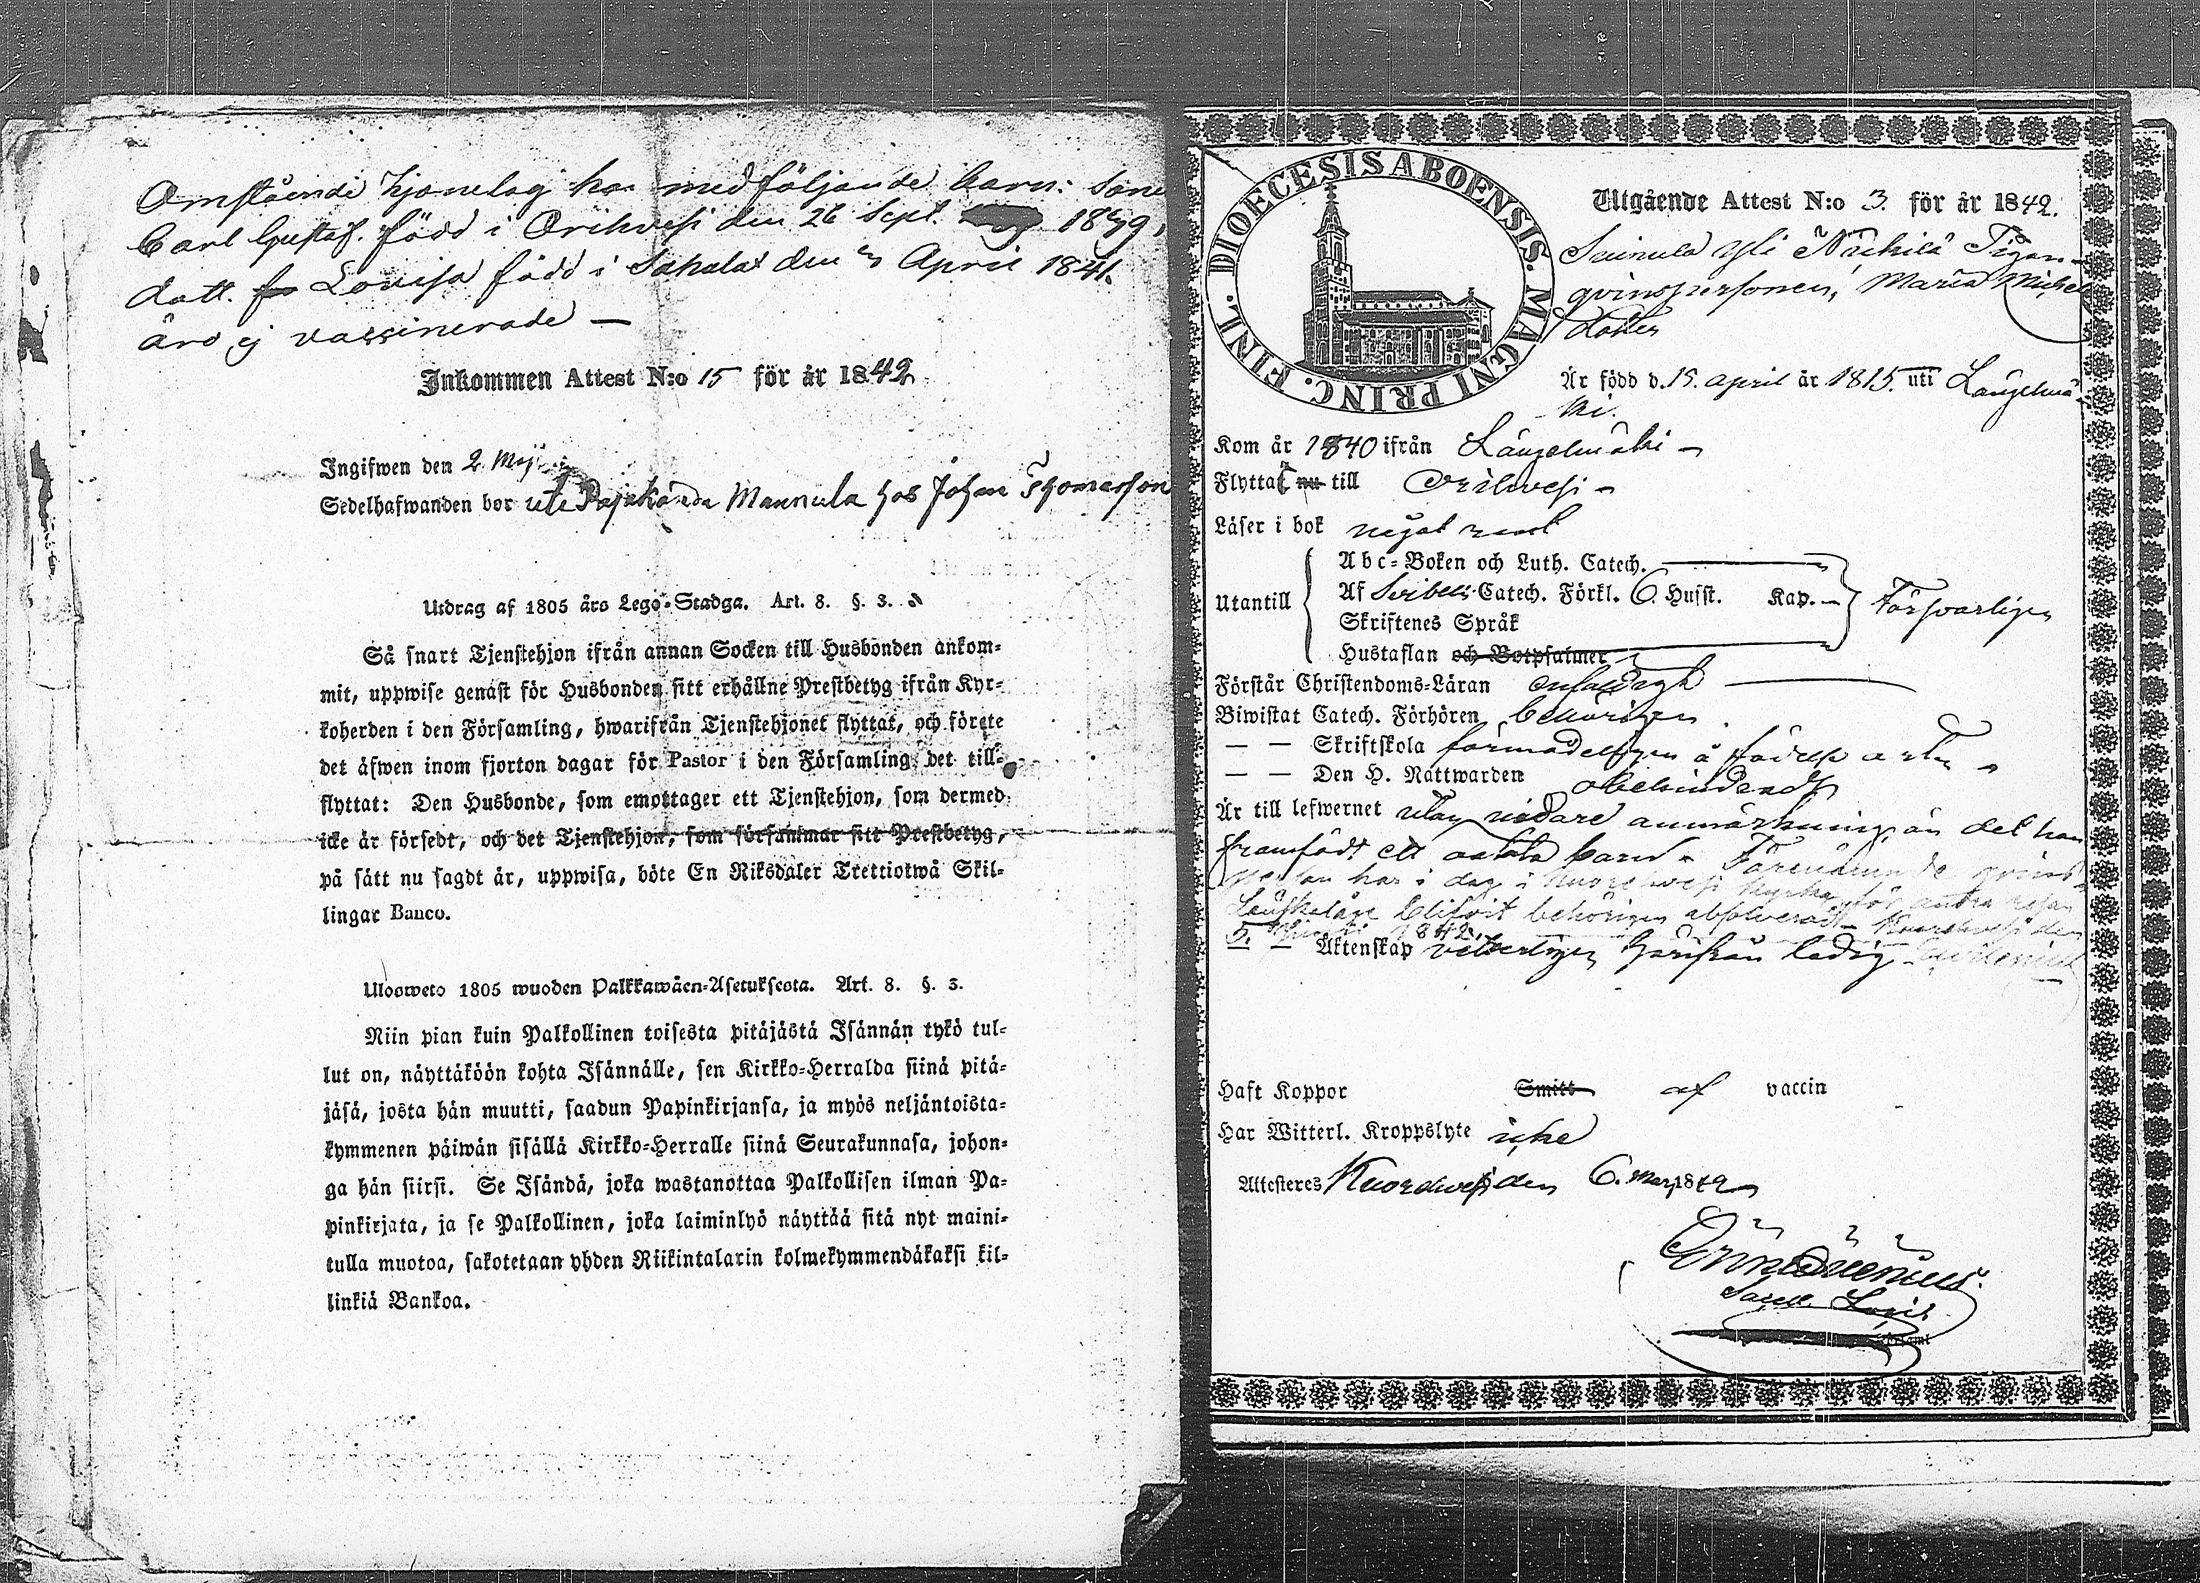 Omstående hjonelag har medföljande barn: Sone
Carl Gustaf född i Orihvesi den 26 Sept. 1839,
dott. Lovisa född i Sahalax den April 1841.
äro ej vaccinerade —
Inkommen Attest N:o 15 för år 1842.
Ingifwen den 2 Maji
Sedelhafwanden bor ute Mannula hos Johan Thomasson
Utdrag af 1805 års Lego-Stadga. Art. 8. §. 3.
Så snart Tjenstehjon ifrån annan Socken till Husbonden ankom-
mit, uppwise genast för Husbonden sitt erhållne Prestbetyg ifrån Kyr-
koherden i den Församling, hwarifrån Tjenstehjonet flyttat, och förete
det äfwen inom fjorton dagar för Pastor i den Församling det till-
flyttat: Den Husbonde, som emottager ett Tjenstehjon, som dermed
icke är försedt, och det Tjenstehjon, som försummar sitt Prestbetyg,
på sätt nu sagdt är, uppwisa, böte En Riksdaler Trettiotwå Skil-
lingar Banco.
Ulosweto 1805 wuoden Palkkawäen-Asetuksesta. Art. 8. §. 3.
Niin pian kuin Palkollinen toisesta pitäjästä Isännän tykö tul-
lut on, näyttäköön kohta Isännälle, sen Kirkko-Herralda siinä pitä-
jäsä, josta hän muutti, saadun Papinkirjansa, ja myös neljäntoista-
kymmenen päiwän sisällä Kirkko-Herralle siinä Seurakunnasa, johon-
ga hän siirsi. Se Isändä, joka wastanottaa Palkollisen ilman Pa-
pinkirjata, ja se Palkollinen, joka laiminlyö näyttää sitä nyt maini-
tulla muotoa, sakotetaan yhden Riikintalarin kolmekymmendäkaksi kil-
linkiä Bankoa.
DIOECESIS ABOENSIS. MAGNI PRINC. FINL.
Utgående Attest N:o 3. för år 1842.
Tigan-
qvinspersonen, Maria Michels
dotter
Är född d. 15. april år 1815. uti Längelmä-
ki.
Kom år 1840 ifrån Längelmäki
Flyttat nu till Orihvesi
Läser i bok något rent
Utantill
Abc-Boken och Luth. Catech.
Af Svibelii Catech. Förkl. 6. Husst. Kap.
Skriftenes Språk
Hustaflan och Botpsalmer
Försvarligen
Förstår Christendoms-Läran enfaldigt
Biwistat Catech. Förhören behörigen
— — Skriftskola förmodeligen å
— — Den H. Nattwarden obehindradt
Är till lefwernet utan vidare anmärkning, än det hon
framfödt ett oäkta barn. Förenämnde qvins-
person har i dag i Kuorehvesi kyrka för andra resan
Lönskaläge blifvit behörigen absolverad. Kuorehvesi den
5. 1842.
Äktenskap veterligen härifrån ledig
Haft Koppor Smitt af vaccin
Har Witterl. Kroppslyte icke
Attesteras Kuorehvesi den 6. Mars 1842